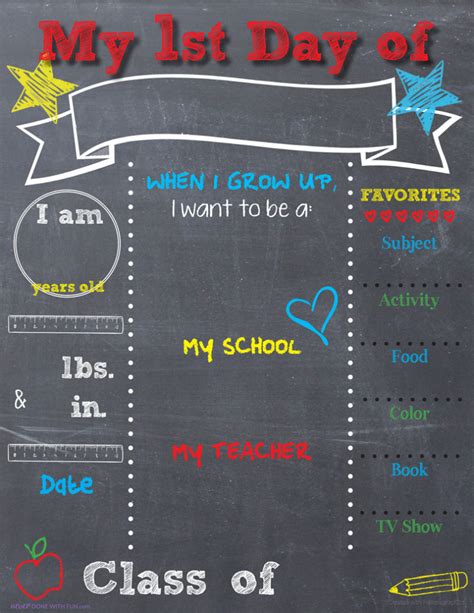 My 1st Day of
WHEN I GROW UP,
I want to be a:
I am
years old
lbs.
&
in.
Date
MY SCHOOL
MY TEACHER
FAVORITES
Subject
Activity
Food
Color
Book
TV Show
Class of